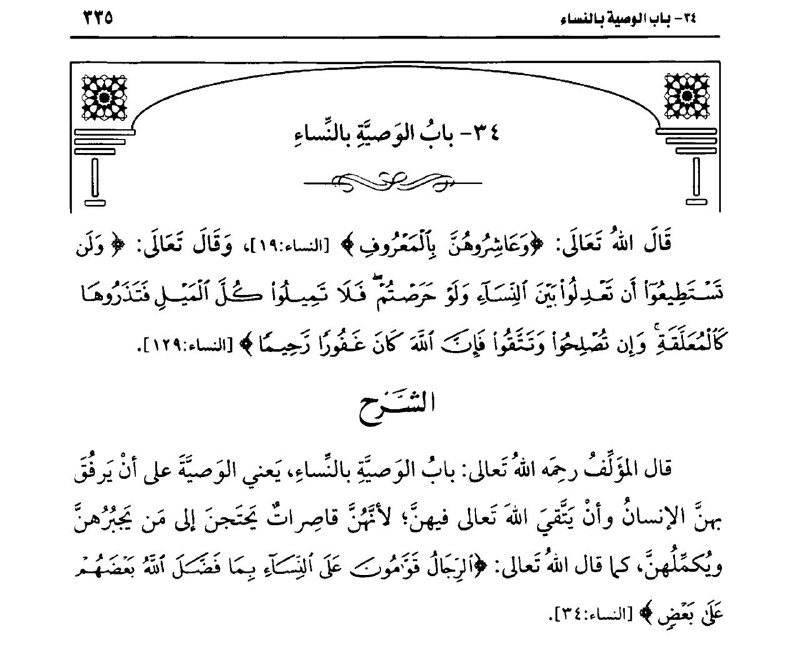 ٣٤- باب الوصية بالنساء ٣٣٥
٣٤- بابُ الوَصيَّةِ بالنِّساءِ
قَالَ اللهُ تَعَالَى: ﴿وَعَاشِرُوهُنَّ بِالْمَعْرُوفِ﴾ [النساء:١٩]، وَقَالَ تَعَالَى: ﴿وَلَن
تَسْتَطِيعُوٓا۟ أَن تَعْدِلُوا۟ بَيْنَ ٱلنِّسَآءِ وَلَوْ حَرَصْتُمْ ۖ فَلَا تَمِيلُوا۟ كُلَّ ٱلْمَيْلِ فَتَذَرُوهَا
كَٱلْمُعَلَّقَةِ ۚ وَإِن تُصْلِحُوا۟ وَتَتَّقُوا۟ فَإِنَّ ٱللَّهَ كَانَ غَفُورًا رَّحِيمًا﴾ [النساء:١٢٩].
الشَّرْح
قال المؤلِّفُ رحِمَه اللهُ تَعالى: بابُ الوَصيَّةِ بالنِّساءِ، يَعني الوصيَّةَ على أنْ يَرفُقَ
بهنَّ الإنسانُ وأنْ يَتَّقيَ اللهَ تعالى فيهنَّ؛ لأنهُنَّ قاصِراتٌ يَحتَجنَ إلى مَن يَجبُرُهنَّ
ويُكمِّلُهنَّ، كما قال اللهُ تَعالى: ﴿ٱلرِّجَالُ قَوَّٰمُونَ عَلَى ٱلنِّسَآءِ بِمَا فَضَّلَ ٱللَّهُ بَعْضَهُمْ
عَلَىٰ بَعْضٍ﴾ [النساء:٣٤].